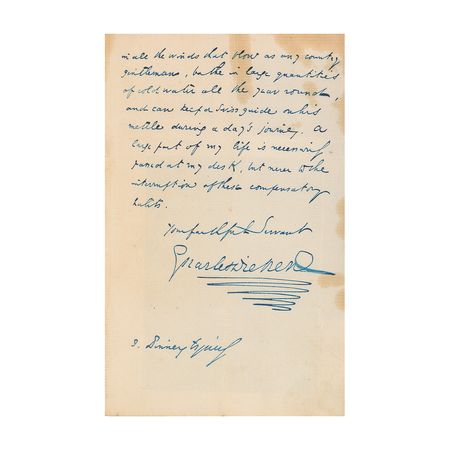 in all the winds that blow as any country
gentleman, bathe in large quantities
of cold water all the year round,
and can keep a Swiss guide on his
mettle during a day's journey. A
large part of my life is necessarily
passed at my desk, but never to the
interruption of these compensatory
habits.
Your faithful Servant
Charles Dickens
Dinner